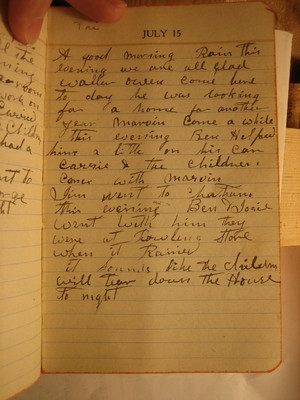 the
ning
work on
Carrie
Childr
had a
nt to
orge
ght
Fri
JULY 15
A good morning Rain this
evening we are all glad
Walter Owens Come here
to day he was looking
for a home for another
year Marvin Come a while
this evening Ben Helped
him a little on his car
Carrie & the children
Come with Marvin
Jim went to
this evening Ben
went with him they
were at Rowling Store
when it Rained
it sounds like the Children
will tear down the House
to night